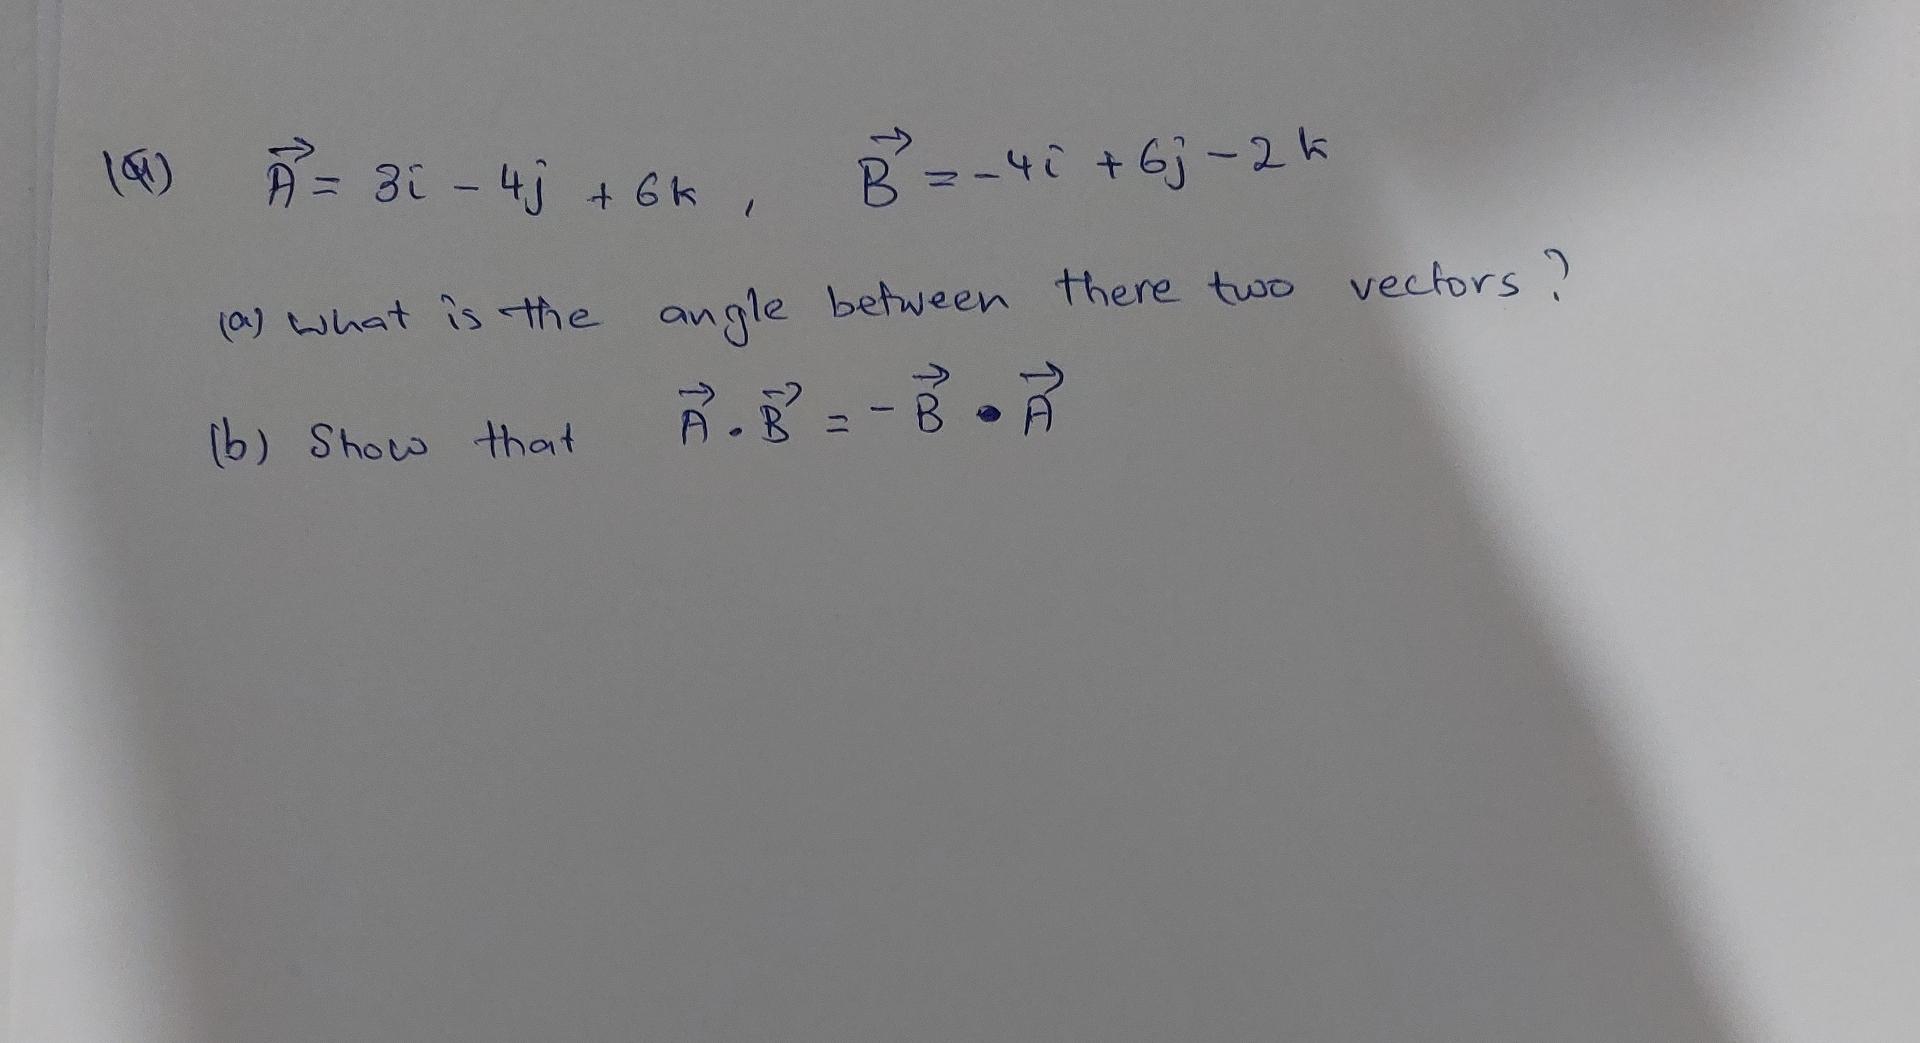 (Q1) A⃗ = 3i - 4j + 6k , B⃗ = -4i + 6j - 2k
(a) what is the angle between there two vectors?
(b) Show that A⃗ . B⃗ = - B⃗ • A⃗